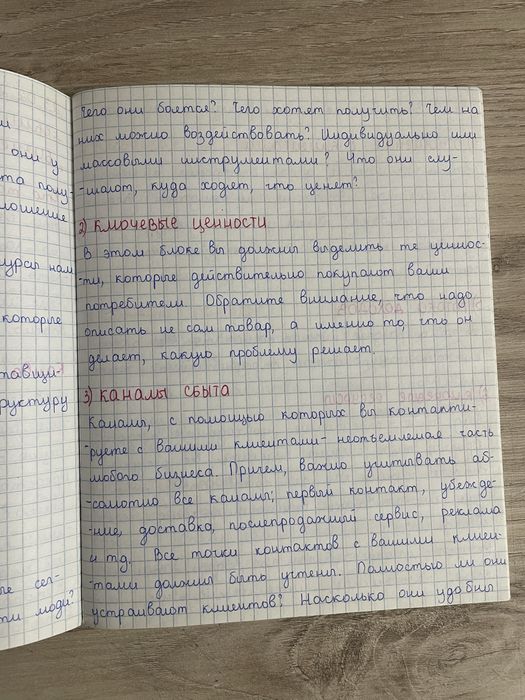 и
они у
та полу-
ложение
туры нам
которые
тавщи-
руктуру
ые сег-
ти люди?
Чего они боятся? Чего хотят получить? Чем на
них можно воздействовать? Индивидуально или
массовыми инструментами? Что они слу-
-шают, куда ходят, что ценят?
2) Ключевые ценности
В этом блоке вы должны выделить те ценнос-
-ти, которые действительно покупают ваши
потребители. Обратите внимание, что надо
описать не сам товар, а именно то, что он
делает, какую проблему решает.
3) Каналы сбыта
Каналы, с помощью которых вы контакти-
-руете с вашими клиентами - неотъемлемая часть
любого бизнеса. Причем, важно учитывать аб-
-солютно все каналы; первый контакт, убежде-
-ние, доставка, послепродажный сервис, реклама
и тд. Все точки контактов с вашими клиен-
-тами должны быть учтены. Полностью ли они
устраивают клиентов? Насколько они удобны